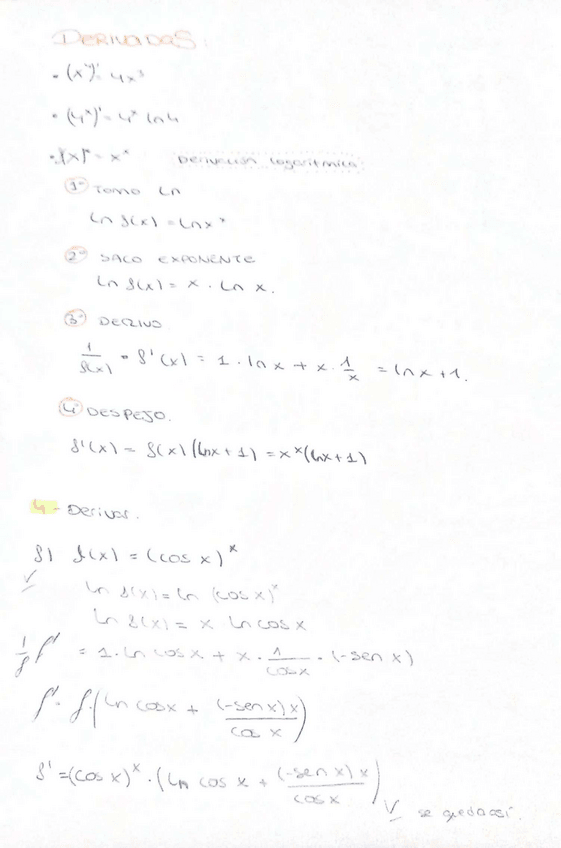 DERIVADAS:
• (x⁴)' = 4x³
• (4ˣ)' = 4ˣ ln4
• f(x) = xˣ Derivación logarítmica:
1º TOMO Ln
Ln f(x) = Ln xˣ
2º SACO EXPONENTE
Ln f(x) = x · Ln x.
3º DERIVO.
1/f(x) · f'(x) = 1 · ln x + x · 1/x = ln x + 1.
4º DESPEJO.
f'(x) = f(x) (Lnx + 1) = xˣ (lnx + 1)
4- Derivar.
f) f(x) = (cos x)ˣ
✓
Ln f(x) = Ln (cos x)ˣ
Ln f(x) = x Ln cos x
1/f f' = 1 · Ln cos x + x · 1/cos x · (-sen x)
f' = f · (Ln cos x + (-sen x) x/cos x)
f' = (cos x)ˣ · (Ln cos x + (-sen x) x/cos x)
✓ se queda así.